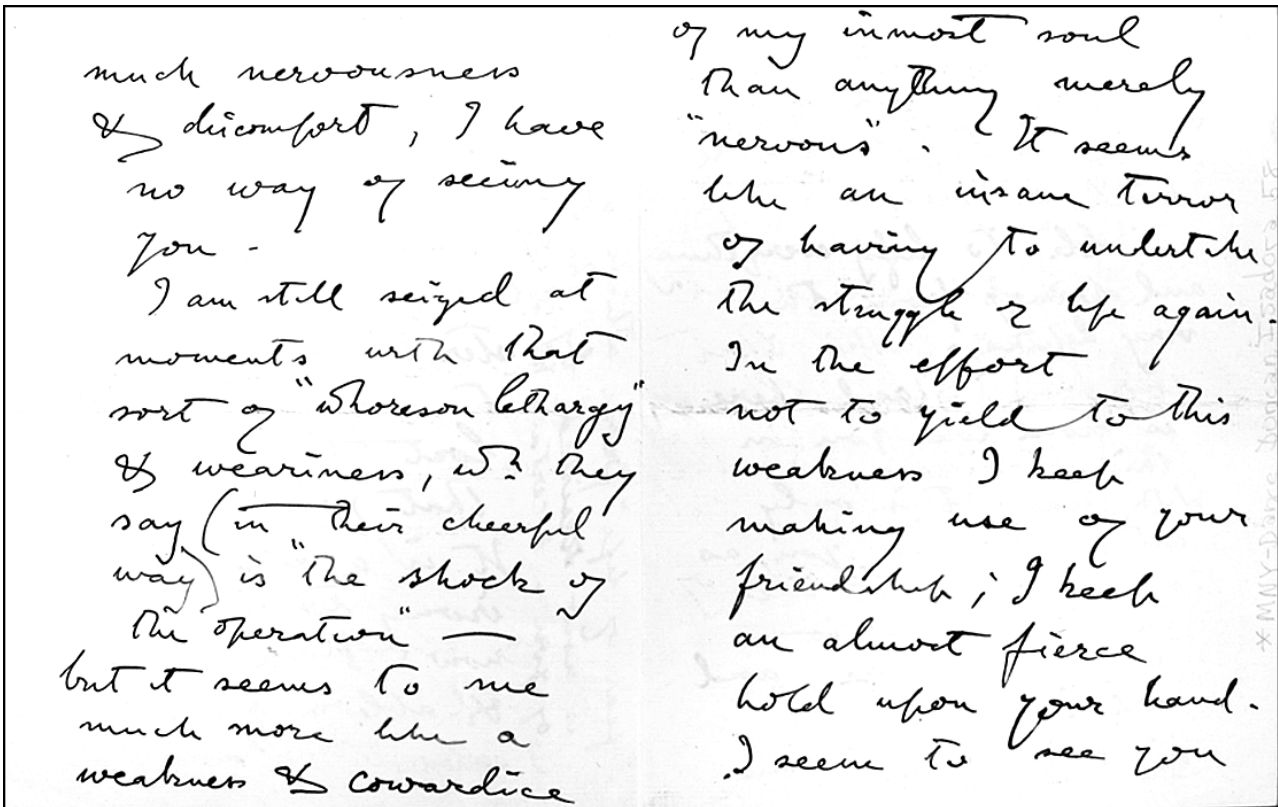 much nervousness
& discomfort, I have
no way of seeing
you -
I am still seized at
moments with that
sort of "whoreson lethargy"
& weariness, wh. they
say (in their cheerful
way) is "the shock of
the operation" —
but it seems to me
much more like a
weakness & cowardice
of my inmost soul
than anything merely
"nervous". It seems
like an insane terror
of having to undertake
the struggle of life again.
In the effort
not to yield to this
weakness I keep
making use of your
friendship; I keep
an almost fierce
hold upon your hand.
I seem to see you
*MNY-Dance Duncan Isadora 58